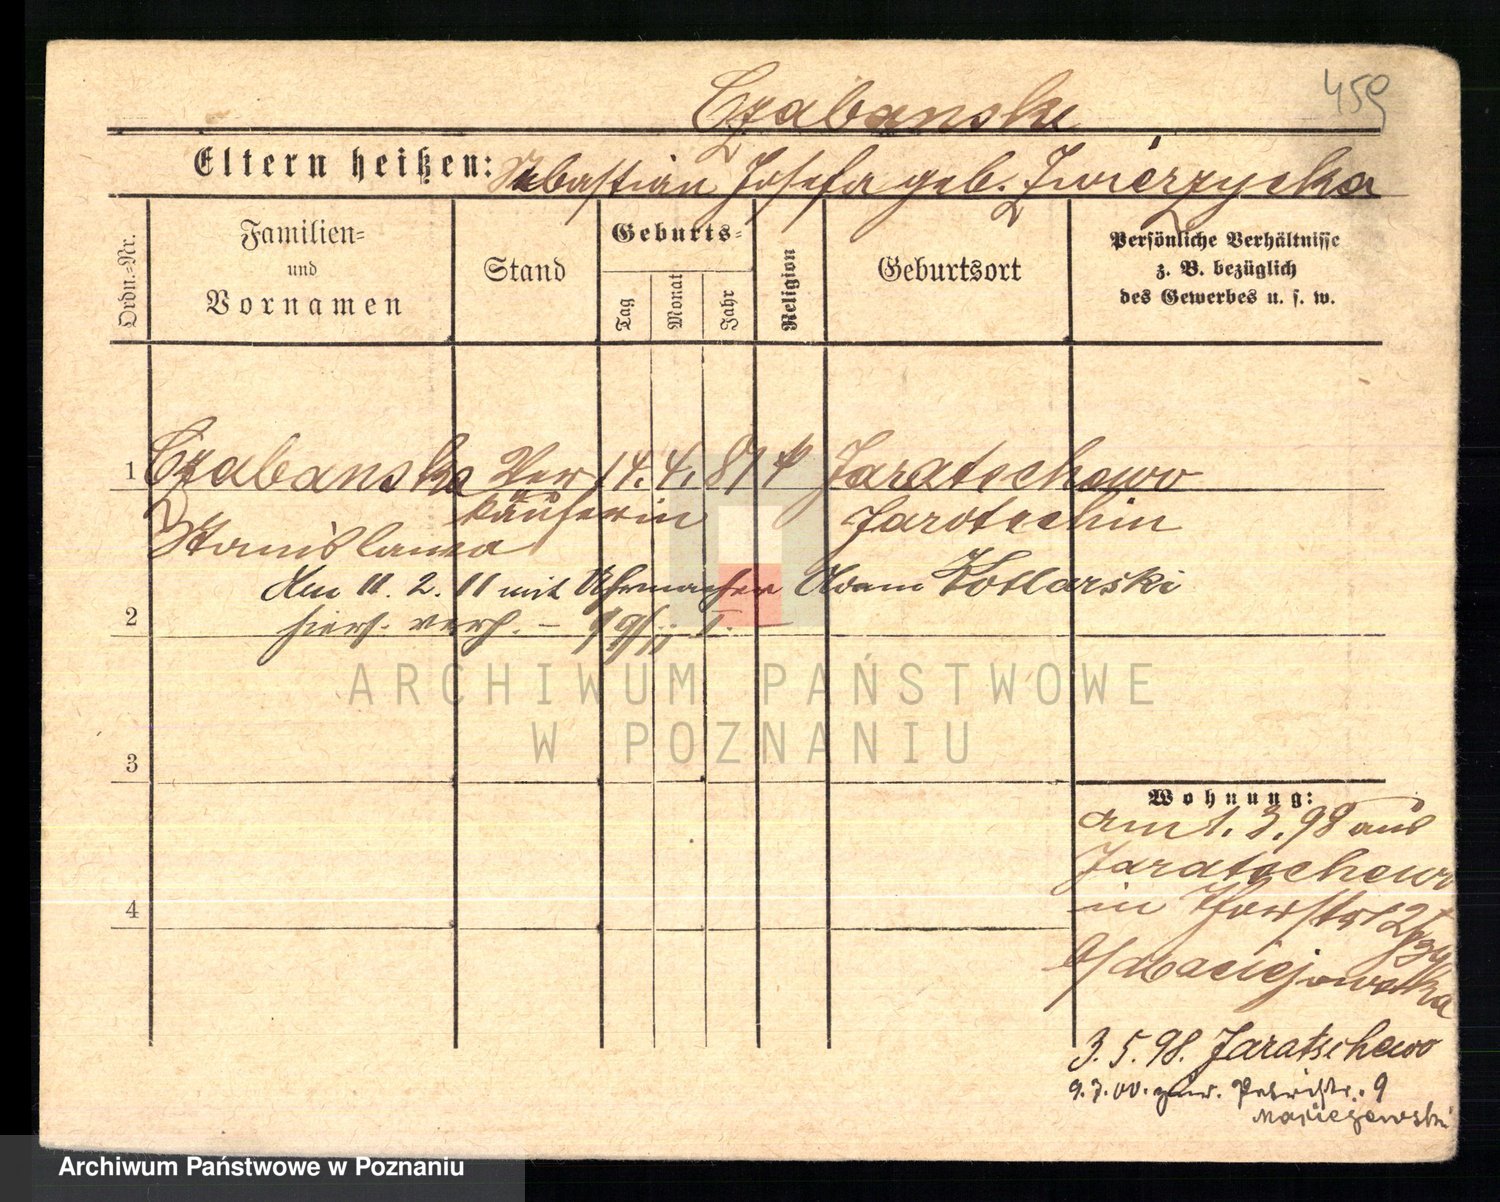 459
Czabanski
Eltern heißen: Sebastian Josefa geb. Zwierzycka
Ordn.-Nr.
Familien-
und
Vornamen
Stand
Geburts-
Tag
Monat
Jahr
Religion
Geburtsort
Persönliche Verhältnisse
z. B. bezüglich
des Gewerbes u. s. w.
1 Czabanska Ver 14. 4. 81 k Jaratschewo
käuferin Jarotschin
Stanislawa
Am 11. 2. 11 mit Uhrmacher Adam Kotlarski
2 hiers. verh. –
ARCHIWUM PAŃSTWOWE
W POZNANIU
3
Wohnung:
am 1. 3. 98 aus
Jaratschewo
4
in
b/ Maciejowska
3. 5. 98. Jaratschewo
9. 3. 00. 9
Maciejewski
Archiwum Państwowe w Poznaniu